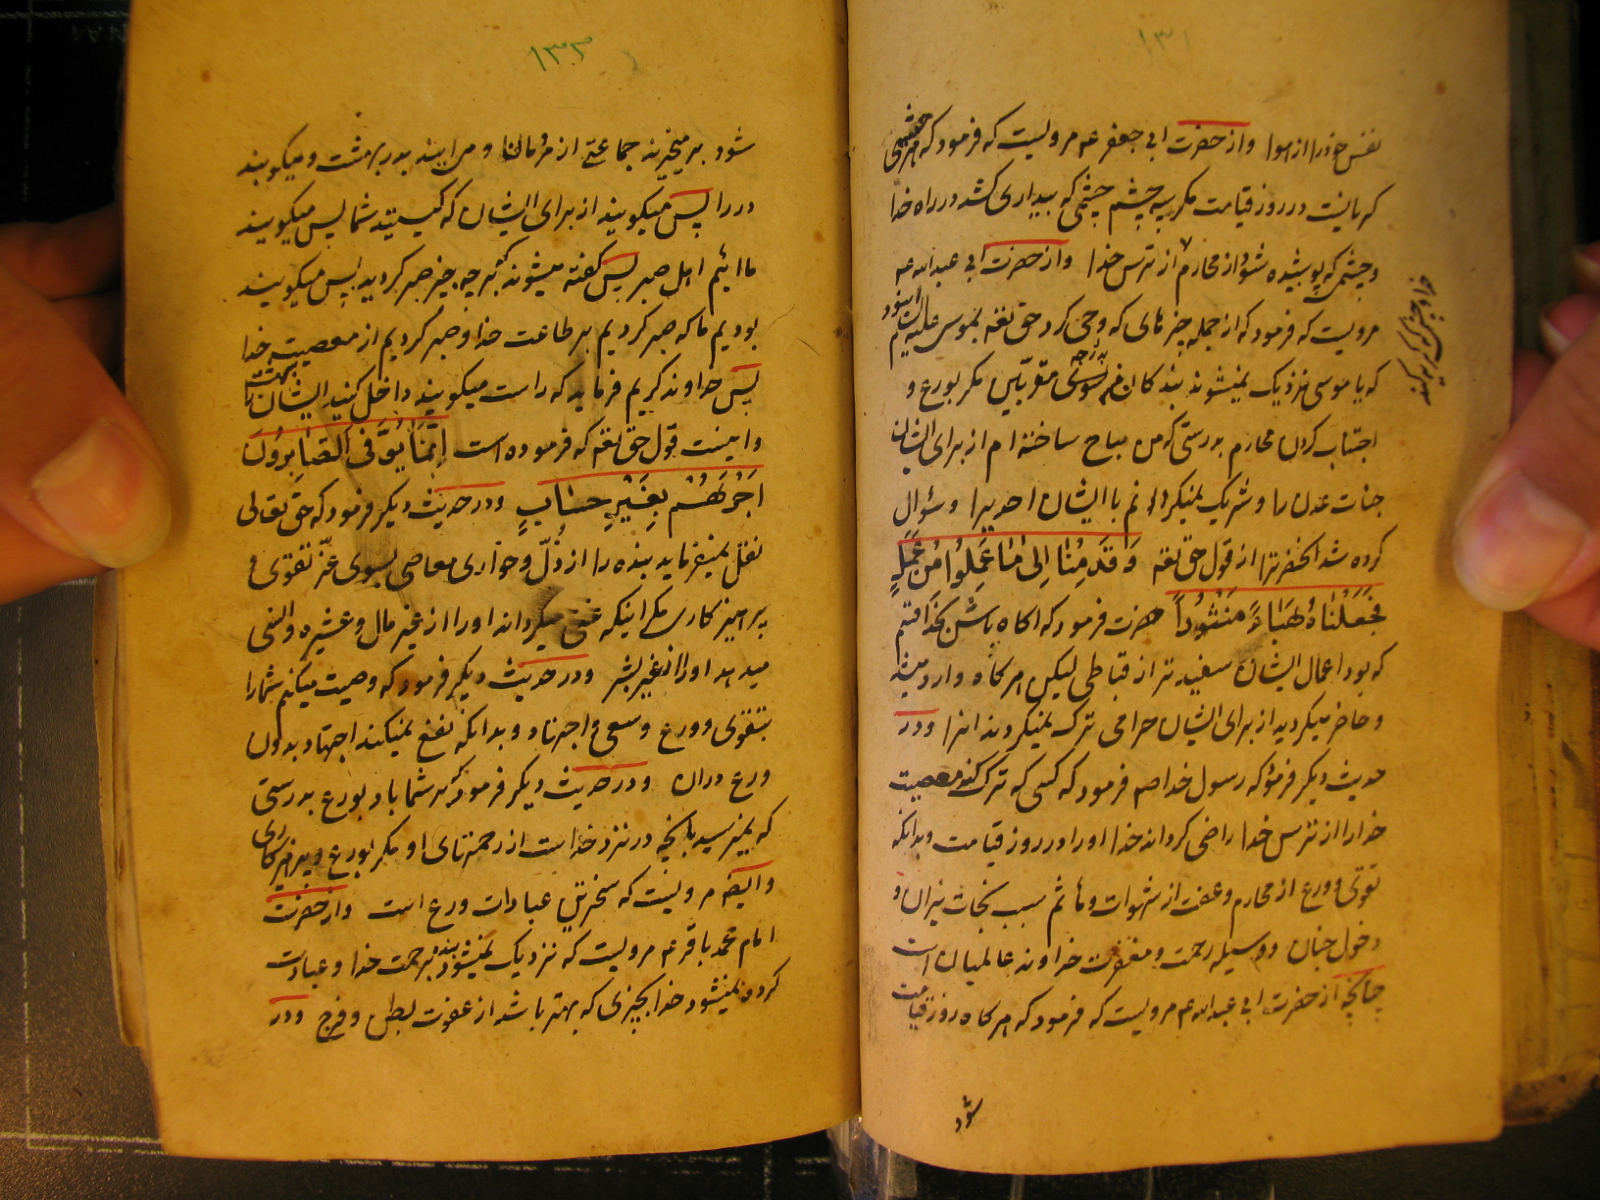 ۱۳۱
نفس خود را از هوا و از حضرت ابی جعفر عم مرویست که فرمود که هر چشمی
که یانست در روز قیامت مکر سه چشم چشمی که بیداری کشد در راه خدا
و چشمی که پوشیده شود از محارم از ترس خدا و از حضرت ابی عبدالله عم
خدا و چشمی که کریه کند
مرویست که فرمود که از جمله چیزهای که وحی کرد حق تعه بموسی علیه السلام این بود
که یا موسی نزدیک نمیشوند بندکان من بسوی درجه مقربین مکر بورع و
اجتناب کردن محارم بدرستی که من مباح ساخته ام از برای ایشان
جنات عدن را و شریک نمیکردانم با ایشان احدیرا و سؤال
کرده شد آنحضرترا از قول حق تعه وَقَدِمْنٰا اِلی مٰا عَمِلُوا مِنْ عَمَلٍ
فَجَعَلْنٰاهُ هَبٰاءً مَنْثُوراً حضرت فرمود که اکاه باش بخدا قسم
که بود اعمال ایشان سفید تر از قباطی لیکن هر کاه وارد میشد
و حاضر میکردید از برای ایشان حرامی ترک نمیکردند انرا و در
حدیث دیکر فرمود که رسول خدا صم فرمود که کسی که ترک کند معصیت
خدا را از ترس خدا راضی کرداند خدا او را در روز قیامت و بدانکه
تقوی و ورع از محارم و عفت از شهوات و مآثم سبب نجات نیران و
دخول جنان و وسیله رحمت و مغفرت خداوند عالمیان است
چنانچه از حضرت ابی عبدالله عم مرویست که فرمود که هر کاه روز قیامت
شود
۱۳۲
شود برمیخیزند جماعتی از مردمان و می ایند بدر بهشت و میکوبند
در را پس میکویند از برای ایشان که کیستید شما پس میکویند
ما ائیم اهل صبر پس کفته میشوند که بر چه چیز صبر کردید پس میکویند
بودیم ما که صبر کردیم بر طاعت خدا و صبر کردیم از معصیت خدا
پس خداوند کریم فرماید که راست میکویند داخل کنید ایشان را بهشت
و اینست قول حق تعه که فرموده است اِنَّمٰا یُوَفَّی الصّٰابِرُونَ
اَجْرَهُمْ بِغَیْرِ حِسٰابٍ و در حدیث دیکر فرمود که حق تعالی
نقل نمیفرماید بنده را از ذلّ و خواری معاصی بسوی عزّ تقوی و
پرهیز کاری مکر اینکه غنی میکرداند او را از غیر مال و عشیره و انس
میدهد او را از غیر بشر و در حدیث دیکر فرمود که وصیت میکنم شما را
بتقوی و ورع و سعی و اجتهاد و بدانکه نفع نمیکند اجتهاد بدون
ورع دران و در حدیث دیکر فرمود که بر شما باد بورع بدرستی
که نمیرسید بانچه در نزد خداست از رحمتهای او مکر بورع و پرهیزکاری
و ایضا مرویست که سخترین عبادات ورع است و از حضرت
امام محمد باقر عم مرویست که نزدیک نمیشود بنده برحمت خدا و عبادت
کرده نمیشود خدا بچیزی که بهتر باشد از عفت بطن و فرج و در